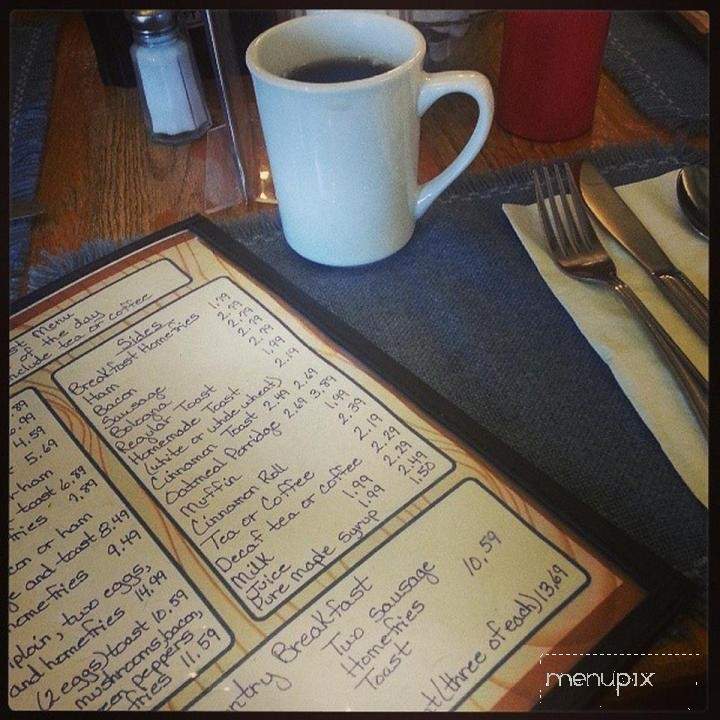 st Menu
of the day
include tea or coffee
Sides
Breakfast Homefries 1.99
Ham 2.99
Bacon 2.99
Sausage 2.99
Bologna 1.99
Regular Toast 2.19
Homemade Toast
(white or whole wheat)
Cinnamon Toast 2.49 2.69
Oatmeal Porridge 2.69 3.89
Muffin 1.99
Cinnamon Roll 2.39
Tea or Coffee 2.19
Decaf tea or coffee 2.29
Milk 1.99 2.29
Juice 1.99 2.49
Pure maple syrup 1.50
.89
.99
4.59
5.69
or ham
toast 6.89
fries 7.89
con or ham
ge and toast 8.49
homefries 9.49
plain, two eggs,
and homefries 14.99
(2 eggs) toast 10.59
mushrooms, bacon,
een peppers
fries 11.59
ntry Breakfast
Two Sausage 10.59
Homefries
Toast
st (three of each) 13.69
menupix